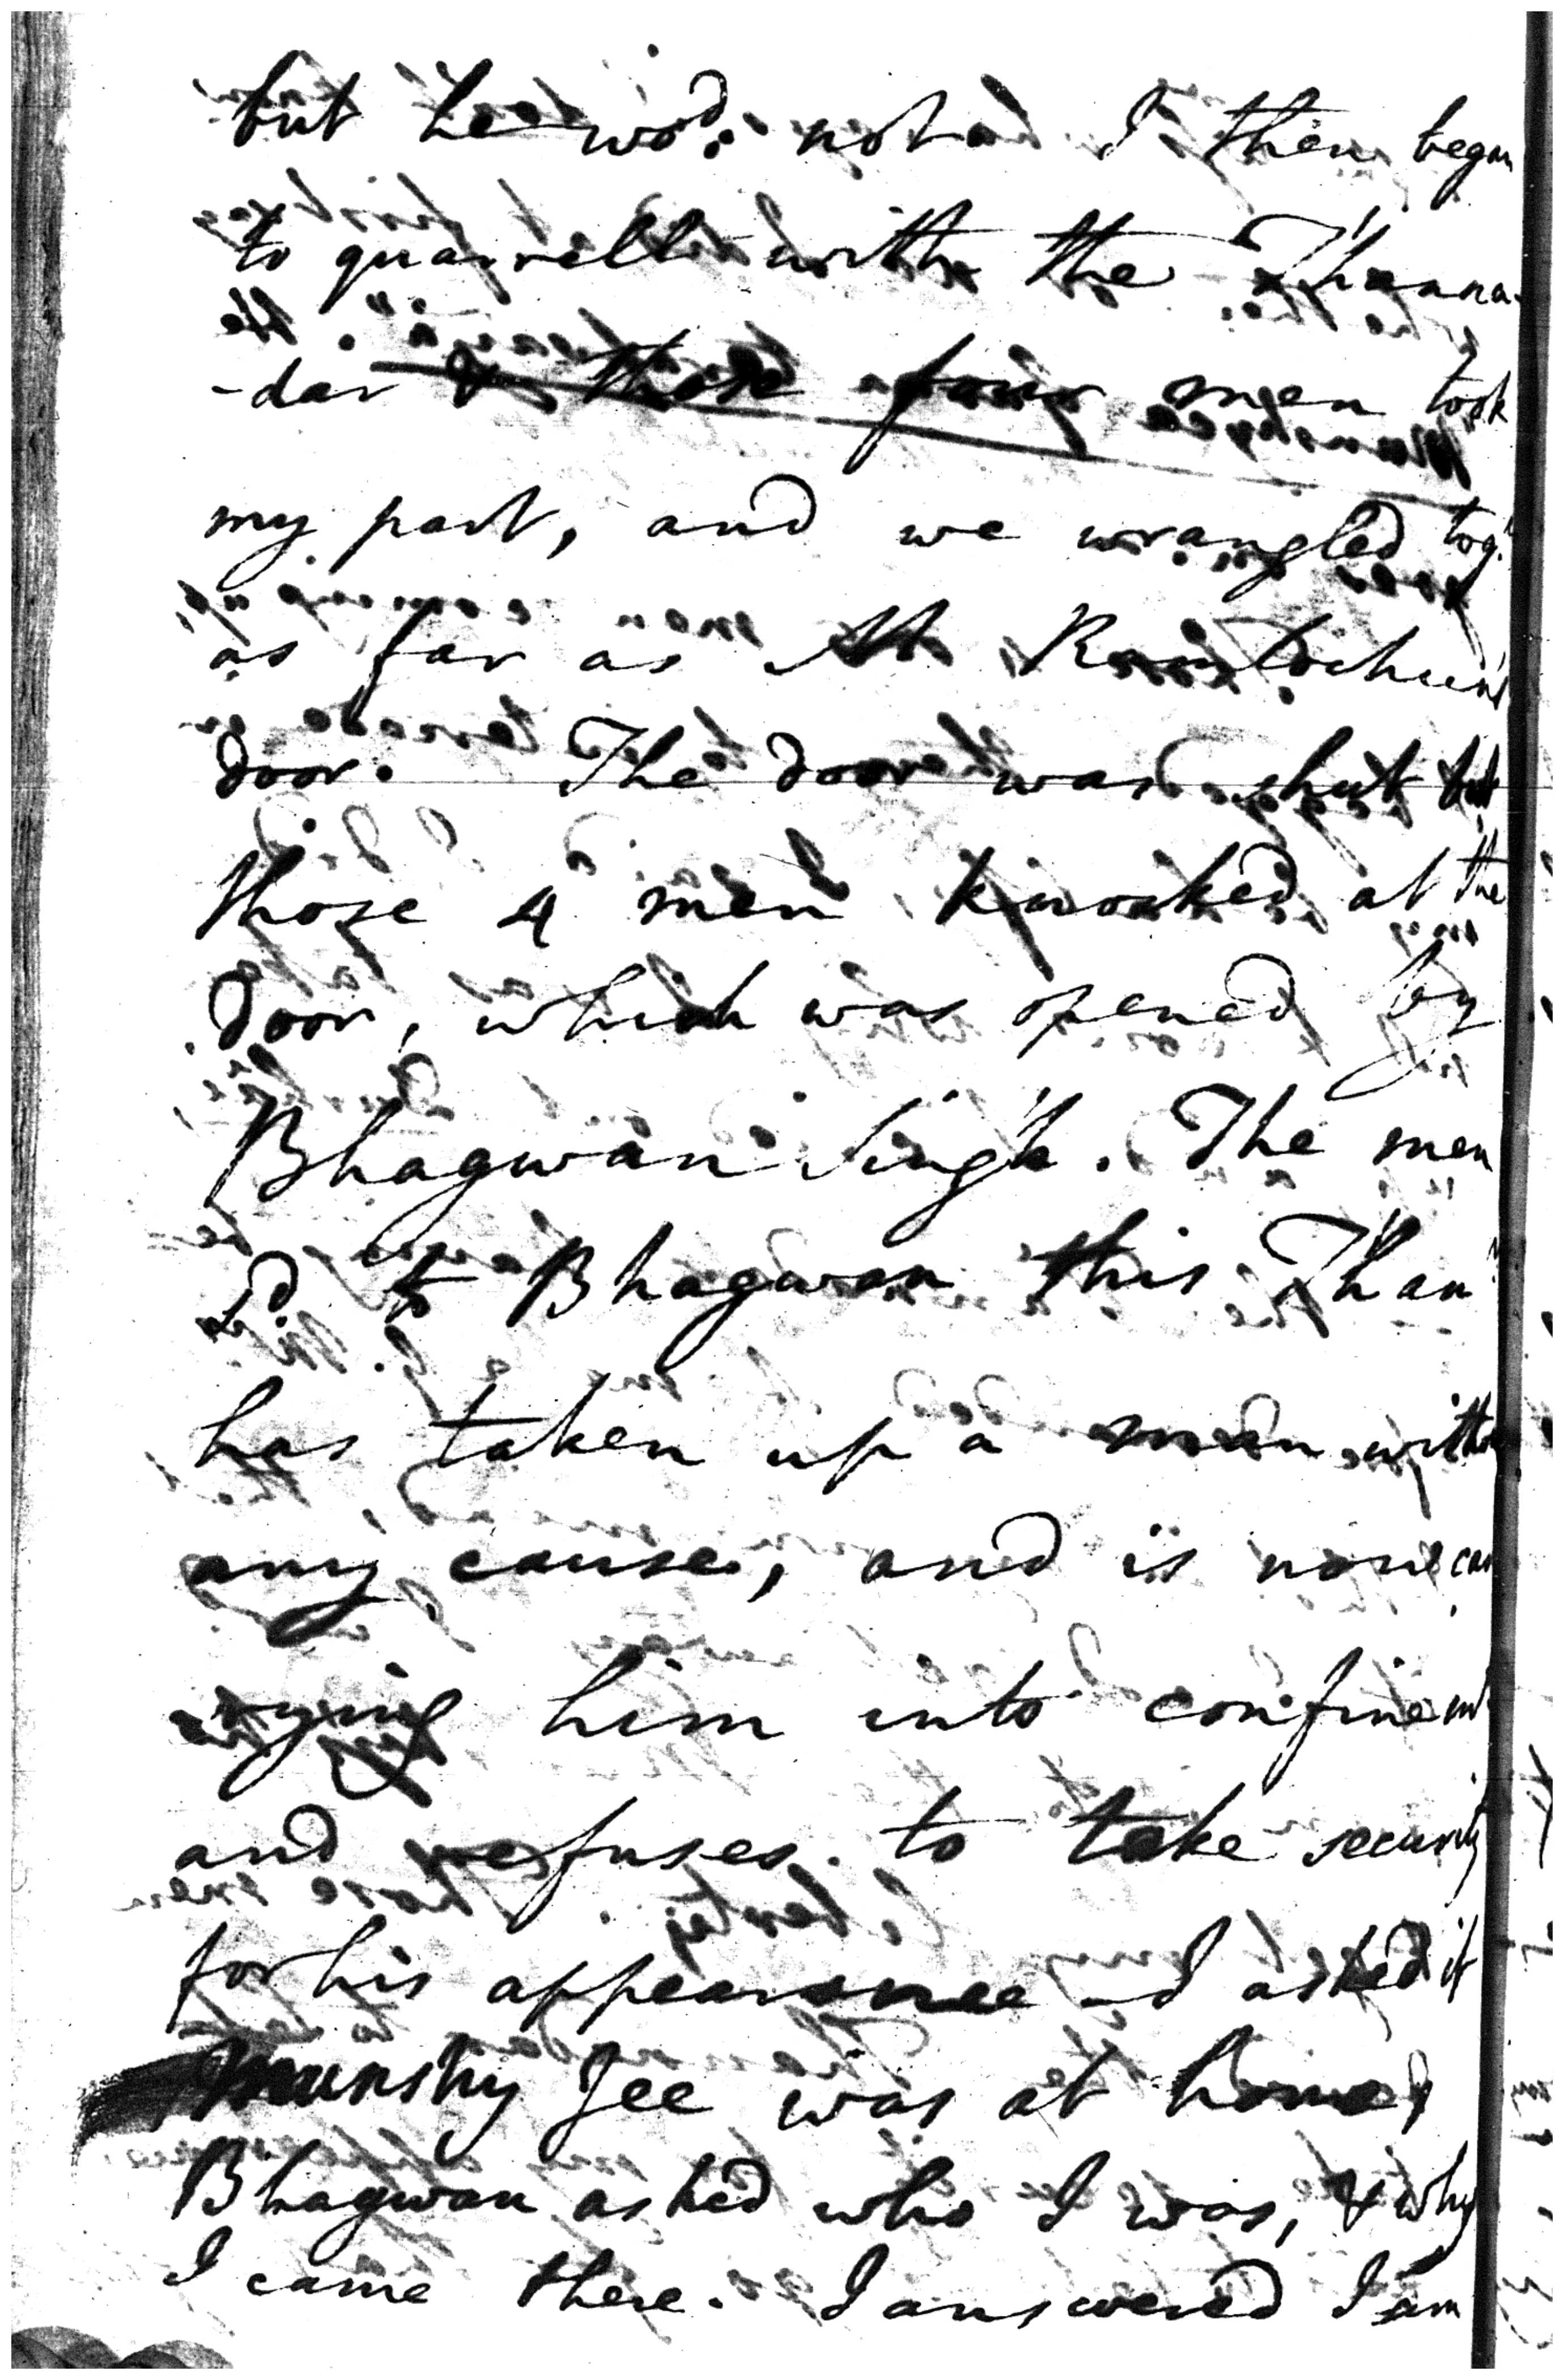 but he wod. not I then began
to quarrell with the Thanna-
-dar & these four men took
my part, and we wrangled tog.r
as far as Ramlochun's
door. The door was shut but
those 4 men knocked at the
door, which was opened by
Bhagwan Singh. The men
sd. to Bhagwan this Than
has taken up a man witho
any cause, and is now car
rying him into confinemt
and refuses to take security
for his appearance – I asked if
Munshy Jee was at home,
Bhagwan asked who I was, & why
I came there. I answered I am